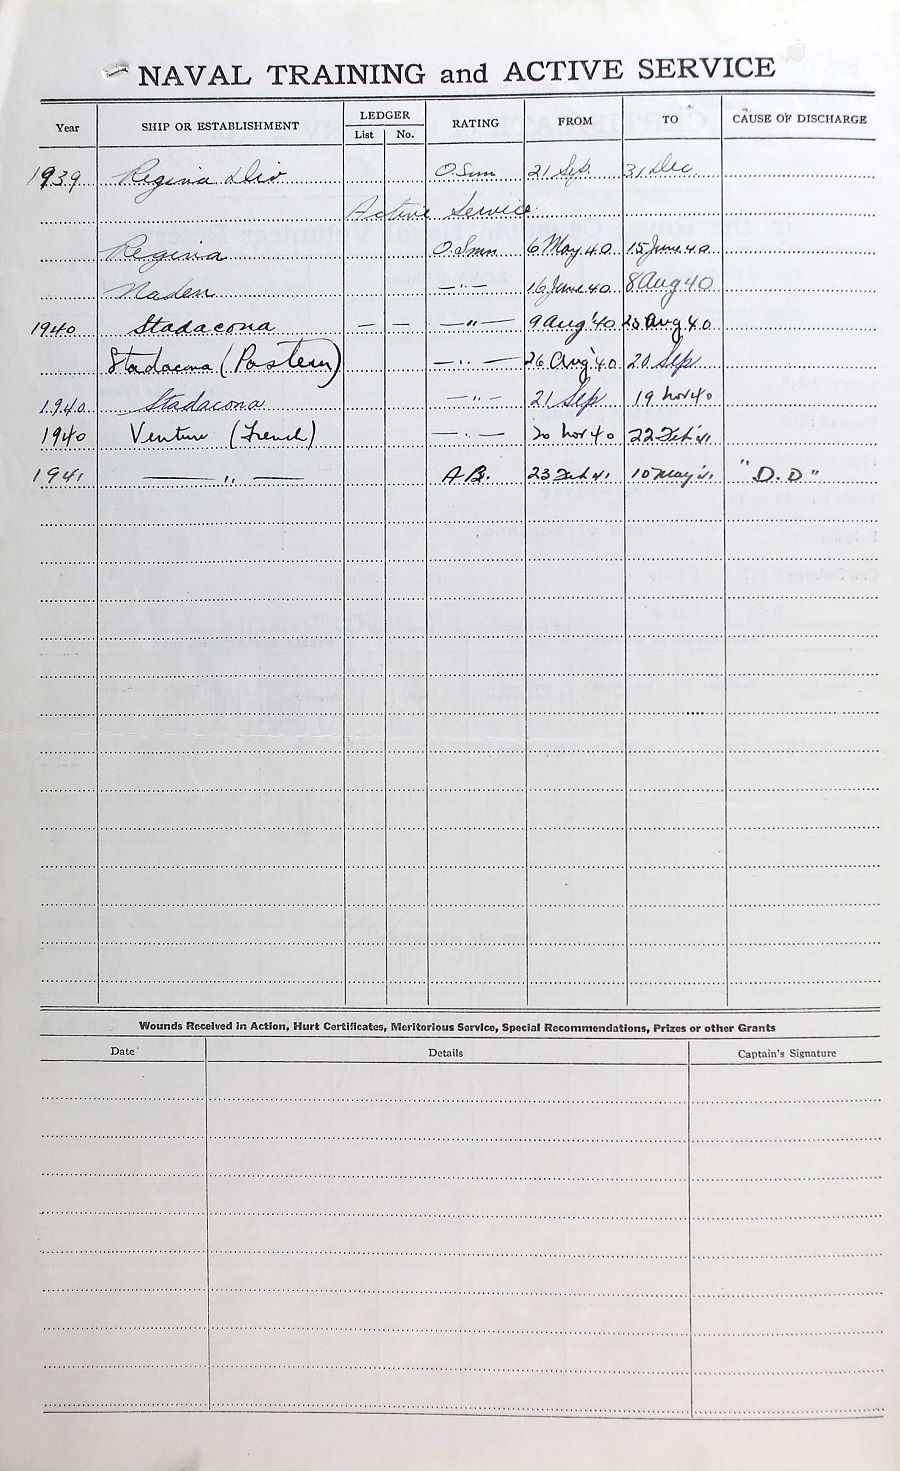 NAVAL TRAINING and ACTIVE SERVICE
Year SHIP OR ESTABLISHMENT LEDGER List No. RATING FROM TO CAUSE OF DISCHARGE
1939 Regina Div O.Smn 21 Sep. 31 Dec
Active Service
Regina O.Smn 6 May 40 15 June 40
Naden —"— 16 June 40 8 Aug 40
1940 Stadacona — — —"— 9 Aug '40 25 Aug 40
Stadacona ( —"— 26 Aug '40 20 Sep
1940 Stadacona —"— 21 Sep 19 Nov 40
1940 Venture (French) —"— 20 Nov 40 22 Feb '41
1941 —"— A.B. 23 Feb 41 10 May '41 "D.D"
Wounds Received in Action, Hurt Certificates, Meritorious Service, Special Recommendations, Prizes or other Grants
Date Details Captain's Signature